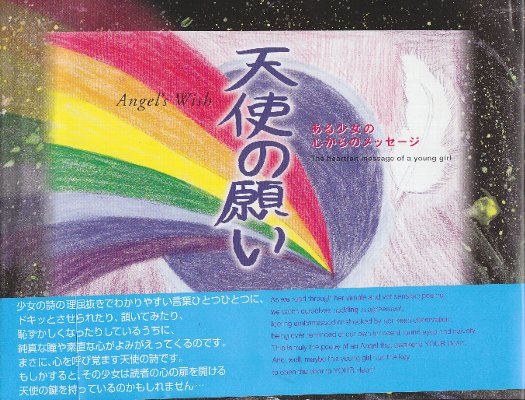 Angel's Wish
天使の願い
ある少女の
心からのメッセージ
The heartfelt message of a young girl
少女の詩の理屈抜きでわかりやすい言葉ひとつひとつに、
ドキッとさせられたり、頷いてみたり、
恥ずかしくなったりしているうちに、
純真な瞳や素直な心がよみがえってくるのです。
まさに、心を呼び覚ます天使の詩です。
もしかすると、その少女は読者の心の扉を開ける
天使の鍵を持っているのかもしれません…
As we read through her simple and yet sensitive poems,
we catch ourselves nodding in agreement,
This is truly the poetry of an Angel
And, well, maybe this young girl has the key
to open the door to YOUR Heart